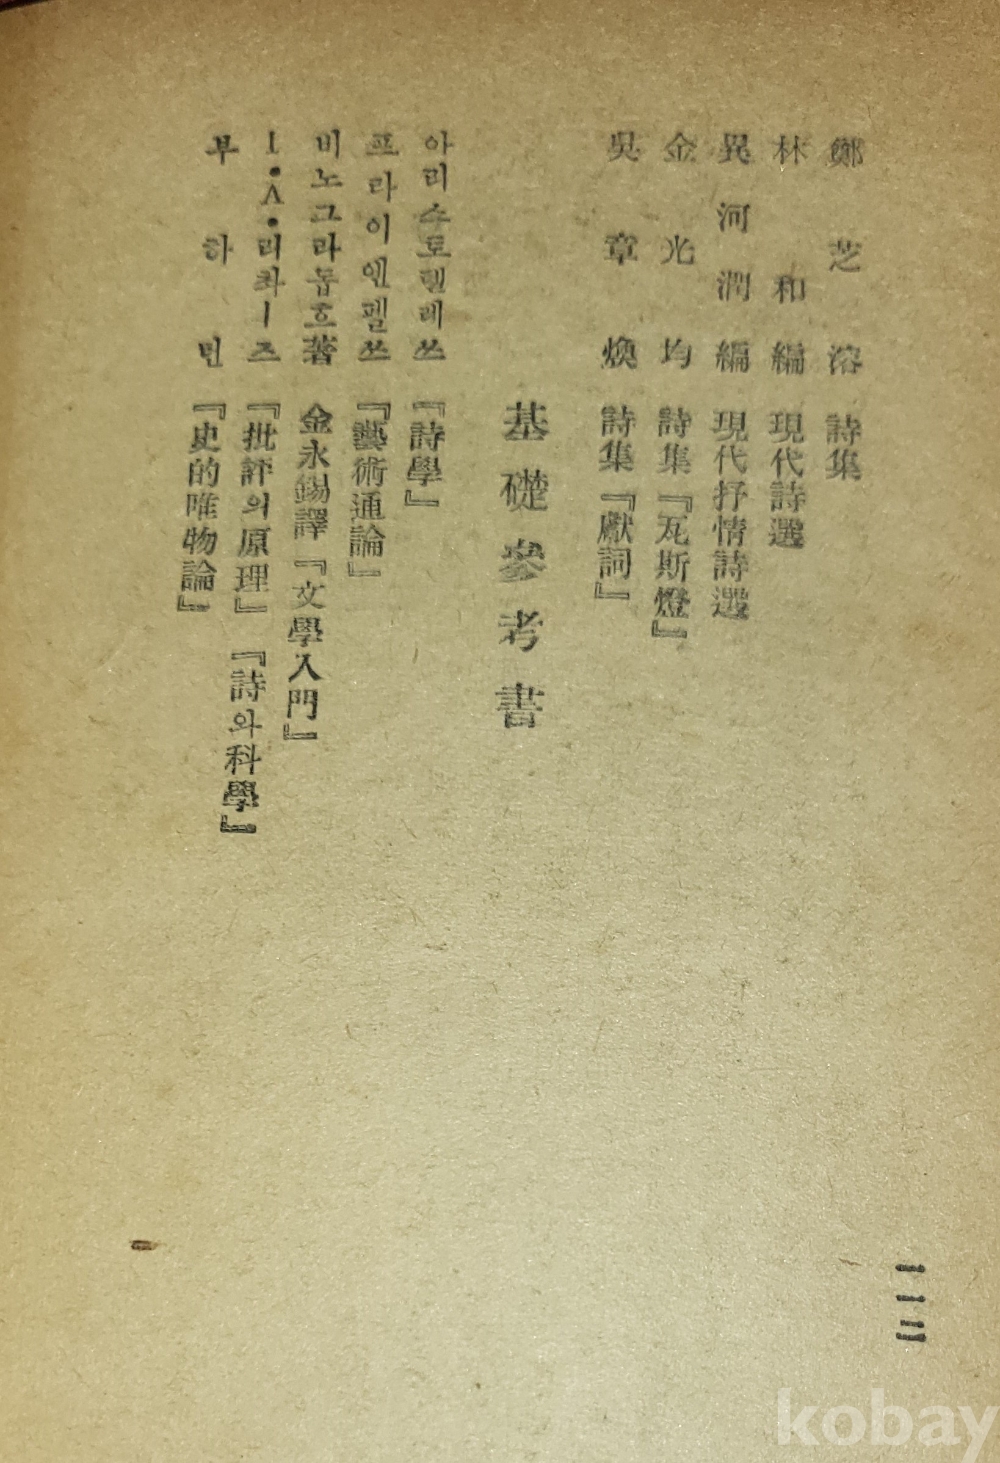 鄭芝溶 詩集
林和編 現代詩選
異河潤編 現代抒情詩選
金光均 詩集『瓦斯燈』
吳章煥 詩集『獻詞』
基礎參考書
아리스토텔레쓰 『詩學』
프라이엔펠쓰 『藝術通論』
비노그라돕흐著 金永錫譯『文學入門』
I•A•리촤ㅣ즈 『批評의原理』『詩와科學』
부하린 『史的唯物論』
kobay